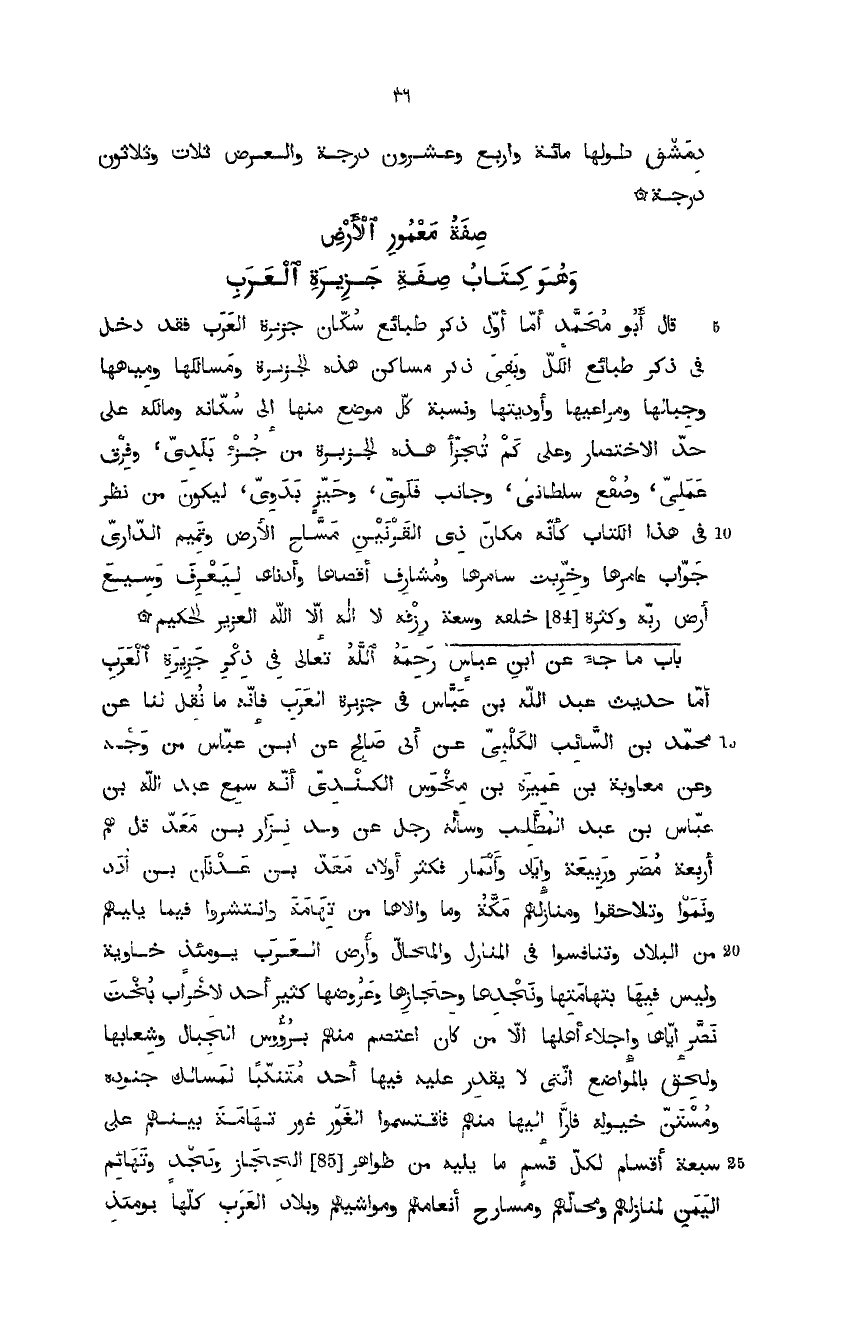 ٤٦
دِمَشْق طولها مائة واربع وعشرون درجة والعرض ثلاث وثلاثون
درجة ۞
صِفَةُ مَعْمُورِ ٱلْأَرْضِ
وَهُوَ كِتَابُ صِفَةِ جَزِيرَةِ ٱلْعَرَبِ
5 قال أَبُو مُحَمَّد أمّا أوّل ذكر طبائع سُكّان جزيرة العَرَب فقد دخل
فى ذكر طبائع الكلّ وبَقِىَ ذكر مساكن هذه الجزيرة ومَسالكها ومياهها
وجبالها ومراعيها وأوديتها ونسبة كلّ موضع منها الى سُكّانه ومالكه على
حدّ الاختصار وعلى كَمْ تُجَزَّأ هذه الجزيرة من جُزْءٍ بَلَدىّ، وفِرْق
عَمَلىّ، وصُقْع سلطانىّ، وجانب فَلَوىّ، وحَيّز بَدَوىّ، ليكونَ من نظر
10 فى هذا الكتاب كأنّه مكانَ ذى القَرْنَيْن مَسّاح الأرض وتَميم الدّارىّ
جَوّاب عامرها وخِرّيت سامرها ومُشارِف أقصاها وأدناها لِيَعْرِفَ وَسِيعَ
أرض ربّه وكثرة [84] خلقه وسعة رِزْقه لا اله الّا الله العزيز الحكيم ۞
باب ما جاء عن ابن عباس رَحِمَهُ ٱللَّهُ تعالى فى ذِكْرِ جَزِيرَةِ ٱلْعَرَبِ
أمّا حديث عبد الله بن عَبّاس فى جزيرة العَرَب فانّه ما نُقل لنا عن
15 محمّد بن السَّائب الكَلْبىّ عن أبى صَالِح عن ابن عبّاس من وَجْه
وعن معاوية بن عَمِيرَة بن مِخْوَس الكِنْدىّ أنّه سمع عبد الله بن
عبّاس بن عبد المُطَّلِب وسأله رجل عن ولد نِزَار بن مَعَدّ قال هم
أربعة مُضَر ورَبِيعَة وايَاد وأَنْمَار فكثر أولاد مَعَدّ بن عَدْنَان بن أُدَد
ونَمَوْا وتلاحقوا ومنازلهم مَكَّة وما والاها من تِهَامَة وانتشروا فيما يليهم
20 من البلاد وتنافسوا فى المنازل والمحالّ وأرض العَرَب يومئذ خاوية
وليس فيها بتهامَتِها ونَجْدِها وحجَازِها وعَرُوضها كثير أحد لاخْراب بُخْتَ
نَصَّر ايّاها واجلاء أهلها الّا من كان اعتصم منهم برُؤُوس الجبال وشعابها
ولحق بالمواضع الّتى لا يقدر عليه فيها أحد مُتَنَكّبًا لمَسالك جنوده
ومُسْتَنّ خيوله فارًّا اليها منهم فاقتسموا الغَوْر غور تِهَامَة بينهم على
25 سبعة أقسام لكلّ قسم ما يليه من ظواهر [85] الحِجَاز ونَجْد وتَهَائم
اليَمَن لمنازلهم ومحالّهم ومسارح أنعامهم ومواشيهم وبلاد العَرَب كلّها يومئذ